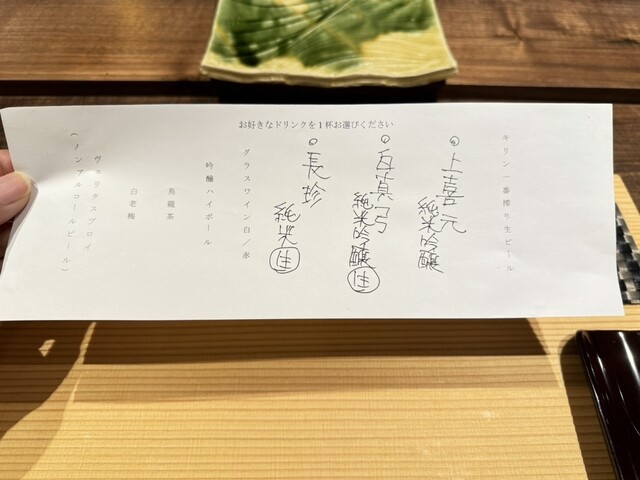 お好きなドリンクを1杯お選びください
キリン一番搾り生ビール
上喜元
純米吟醸
白真弓
純米吟醸 佳
長珍
純米 佳
グラスワイン白/赤
吟醸ハイボール
烏龍茶
白老梅
ヴェリタスブロイ
(ノンアルコールビール)